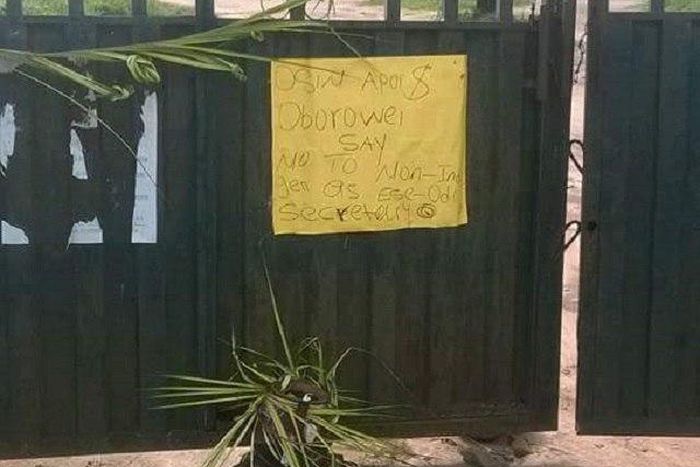 OSIN APOI $
Oborowei
SAY
NO TO Non-In
Jen as ESE-Odi
Secretary